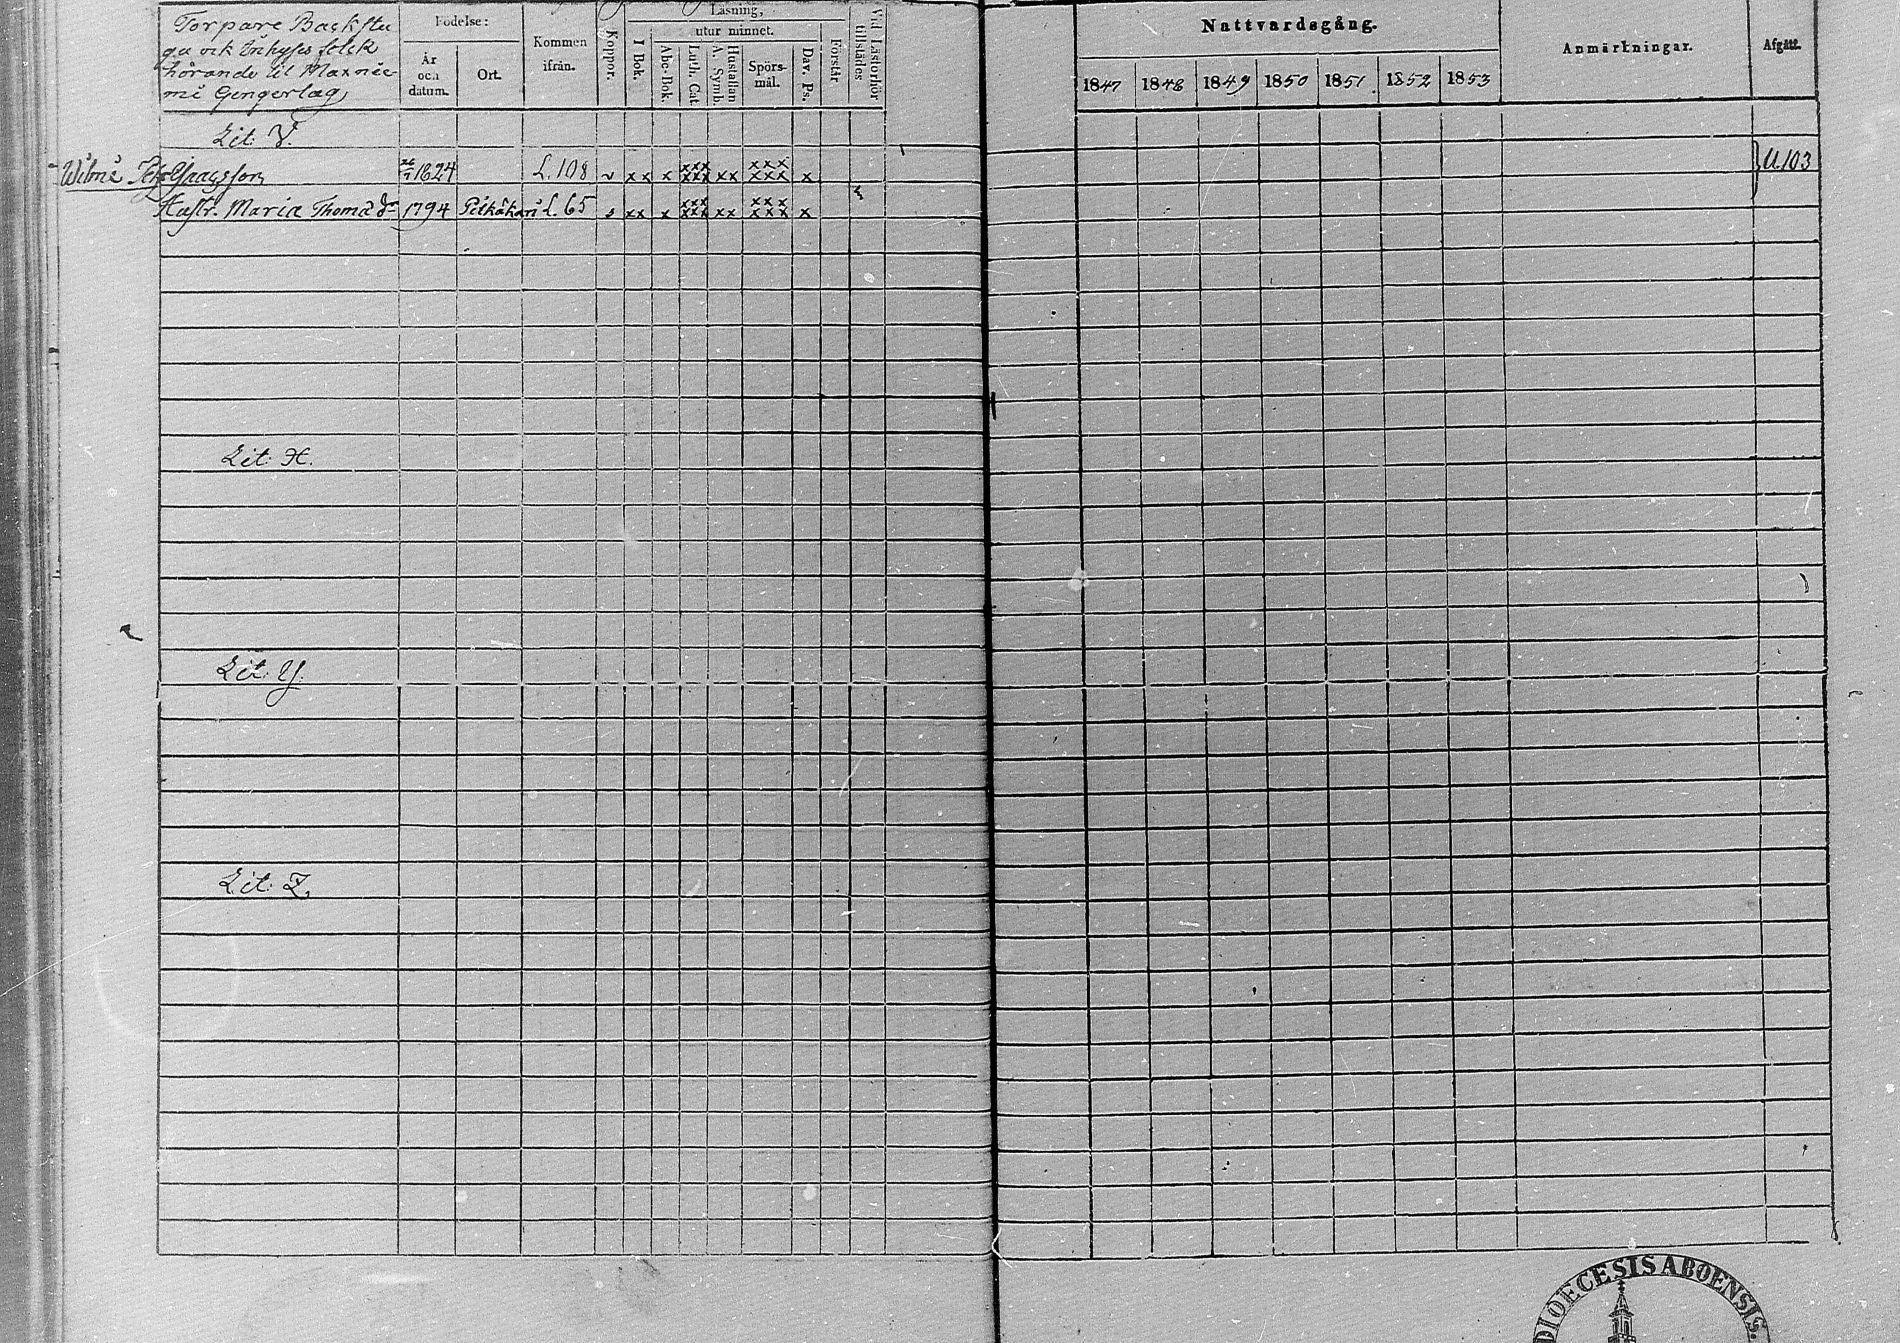 Torpare Backstu
gu och Inhyses folck
hörande til Maxnie
mi Gengerlag,
Födelse:
År
och
datum.
Ort.
Kommen
ifrån.
Koppor.
Läsning,
I Bok.
utur minnet.
Abc-Bok.
Luth. Cat.
A. Symb.
Hustaflan
Spörs-
mål.
Dav. Ps.
Förstår
Vid Läsförhör
tillstädes
Nattvardsgång.
1847 1848 1849 1850 1851 1852 1853
Anmärkningar.
Afgått.
Lit: V.
Wilmi 1824 L. 108 v xx x xxx xxx xx xxx xxx x U 103
Hustr. Maria Thomä dr 1794 Pitkäkari L. 65 xx x xxx xxx xx xxx xxx x
Lit: X.
Lit: Y.
Lit: Z.
DIOECESIS ABOENSIS.